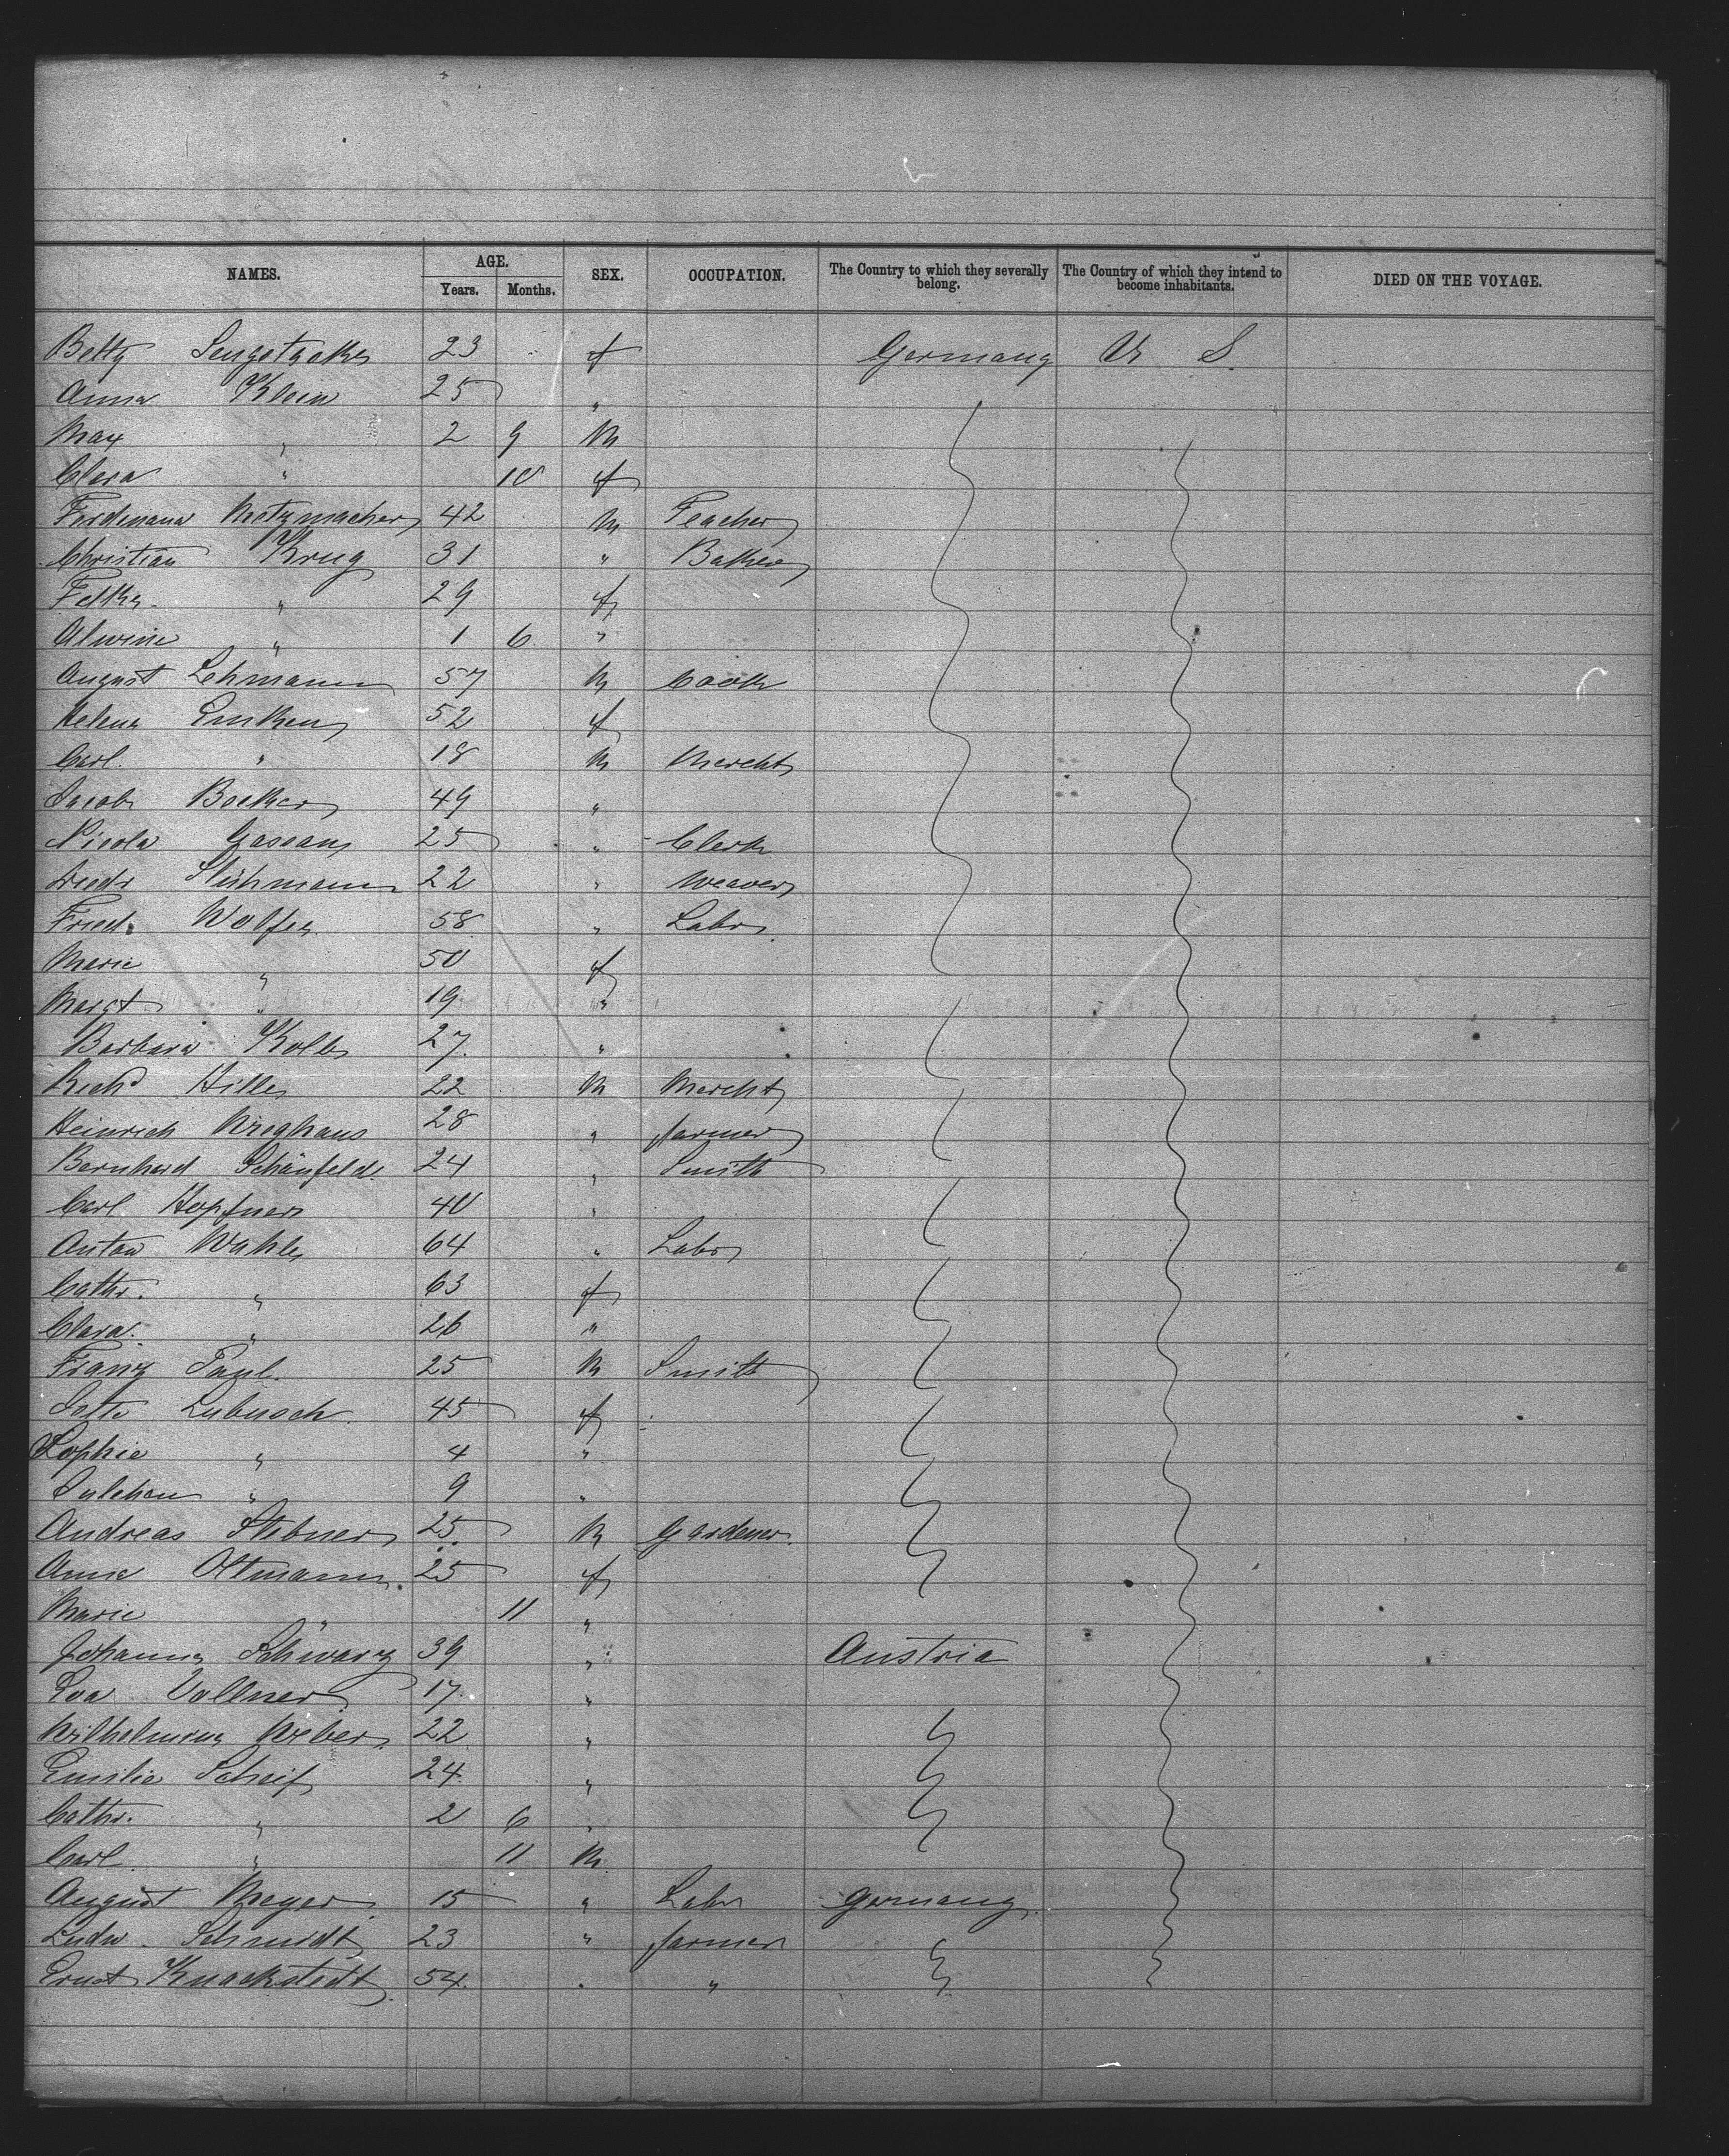 NAMES. AGE. SEX. OCCUPATION. The Country to which they severally belong. The Country of which they intend to become inhabitants. DIED ON THE VOYAGE.
Years. Months.
Betty 23 f Germany U S.
Anna Klein 25 "
Max " 2 9 M
Clara " 10 f
Ferdinand Metzmacher 42 M Teacher
Christian Krug 31 " Baker
" 29 f
Alwine " 1 6 "
August Lehmann 57 M Cook
Helena Emken 52 f
Carl " 18 M Mercht
Jacob Becker 49 "
Nicola 25 " Clerk
Diedr 22 " Weaver
Fried. Wolfes 58 " Labr
Marie " 50 f
Margt " 19 "
Barbara Kolb 27 "
Richd Hille 22 M Mercht
Heinrich 28 " farmer
Bernhard Schönfeld 24 " Smith
Carl Hopfner 40 "
Anton Wahle 64 " Labr
Cathr. " 63 f
Clara. " 26 "
Franz Paul. 25 M Smith
Lubusch 45 f
Sophie " 4 "
Julchen " 9 "
Andreas Stebner 25 M Gardener
Anna Oltmann 25 f
Marie " 11 "
Johanna Schwarz 39 " Austria
Eva Vollner 17 "
Wilhelmina Weber 22 "
Emilie Scheif 24 "
Cathr. " 2 6 "
Carl " 11 M
August Meyer 15 " Labr Germany
Ludw. Schmidt 23 " farmer
Ernst Knackstedt 54 " "